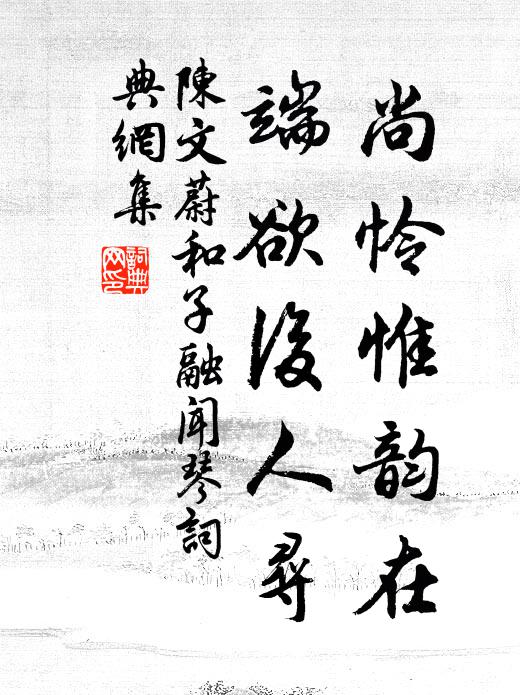 尚怜惟韵在
端欲後人尋
陳文蔚和子融聞琴詞
典網集
詞典
网印